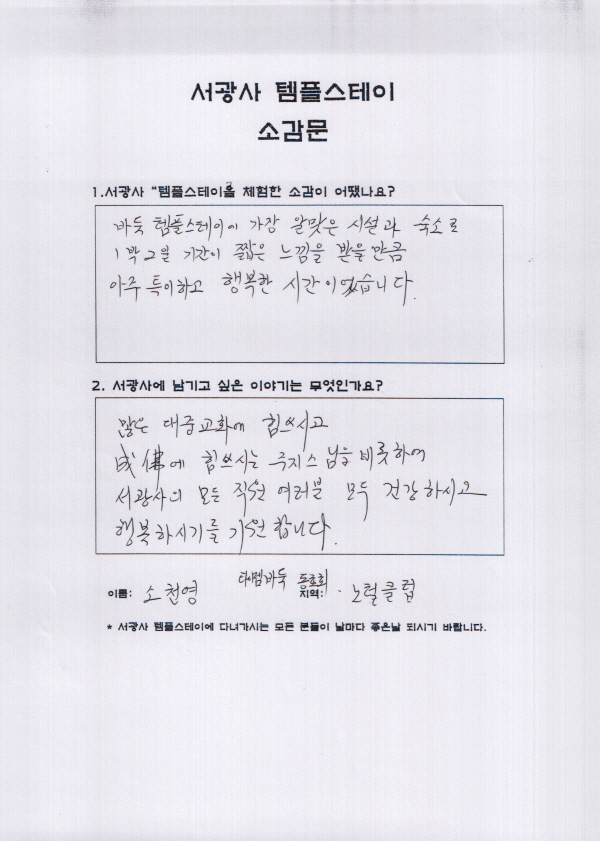 서광사 템플스테이
소감문
1.서광사 "템플스테이를 체험한 소감이 어땠나요?
바둑 템플스테이에 가장 알맞은 시설과 숙소로
1박2일 기간이 짧은 느낌을 받을만큼
아주 특이하고 행복한 시간이었습니다.
2. 서광사에 남기고 싶은 이야기는 무엇인가요?
많은 대중교화에 힘쓰시고
成佛에 힘쓰시는 주지스님을 비롯하여
서광사의 모든 직원 여러분 모두 건강하시고
행복하시기를 기원합니다.
이름: 소천영 바둑 동호회 지역: 노털클럽
* 서광사 템플스테이에 다녀가시는 모든 분들이 날마다 좋은날 되시기 바랍니다.